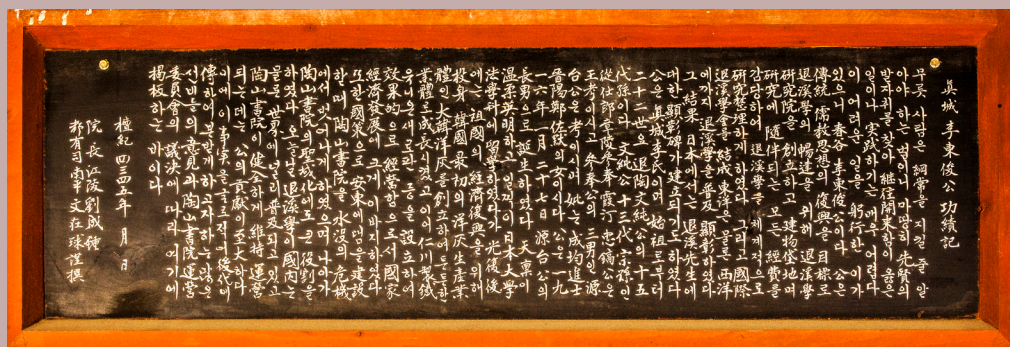 眞城李東俊公功績記
무릇 사람은 綱常을 지킬 줄 알
아야 하는 법이니 마땅히 先賢의
발자취를 찾아 繼往開來함이 옳은
일이나 實踐하기는 매우 어렵다
이 어려운 일을 躬行한 이가
있으니 春谷 李東俊公이다 公은
傳統 儒敎思想의 復興을 目標로
退溪學의 暢達을 위해 退溪學
硏究院을 創立하고 建物垈地며
硏究에 隨伴되는 모든 經費를
감당하여 退溪學을 체계적으로
硏究整理하게 하였다 그리고 國際
退溪學會를 結成 東洋은 물론 西洋
에까지 退溪學을 普及 顯彰하였다
그 結果 日本에서는 退溪先生에
대한 顯彰碑가 建立되기도 하였다
公은 眞城李氏이며 始祖로부터
二十二世요 退陶文純公의 十五
代孫이다 文純公 十三代 宗孫인
從仕郞 章陵參奉 霞汀 忠鎬公은
王考이시고 參奉公의 三男인 源
台公은 考이시며 妣는 成均進士
晉陽鄭佐의 女이시다 公은 一九
一六年 一月二十七日 源台公의
長男으로 誕生하였다 天稟이
溫柔英明하고 일찍이 日本大學
法學科에 留學하였다가 光復後
에는 祖國의 經濟復興을 위해
投身 韓國 最初의 洋灰生産業
體인 大韓洋灰를 創立하여 튼튼한
業體로 成長시켰고 이어 仁川製鐵
等을 設立하여
效果的으로 經營함으로서 國家
經濟發展에 크게 이바지하였다
또한 國策으로 安東에 댐을 建設
할 때 陶山書院을 水沒의 危機
에서 벗어나게 하였으며 나아가
陶山書院의 聖域化에도 큰 役割을
하였다 오늘날 退溪學이 國內는
물론 世界에 널리 普及되고 있고
陶山書院이 健全하게 維持 運營
되는데는 公의 貢獻이 至大하다
이에 이 事實을 글로 적어 後代에
傳하여 본받게 하고자 하는 많은
선비들의 意見과 陶山書院運營
委員會의 議決에 따라 여기에
揭板하는 바이다
檀紀 四三四五年 月 日
院長 江陵 劉成鍾
都有司 南平 文在球 謹撰